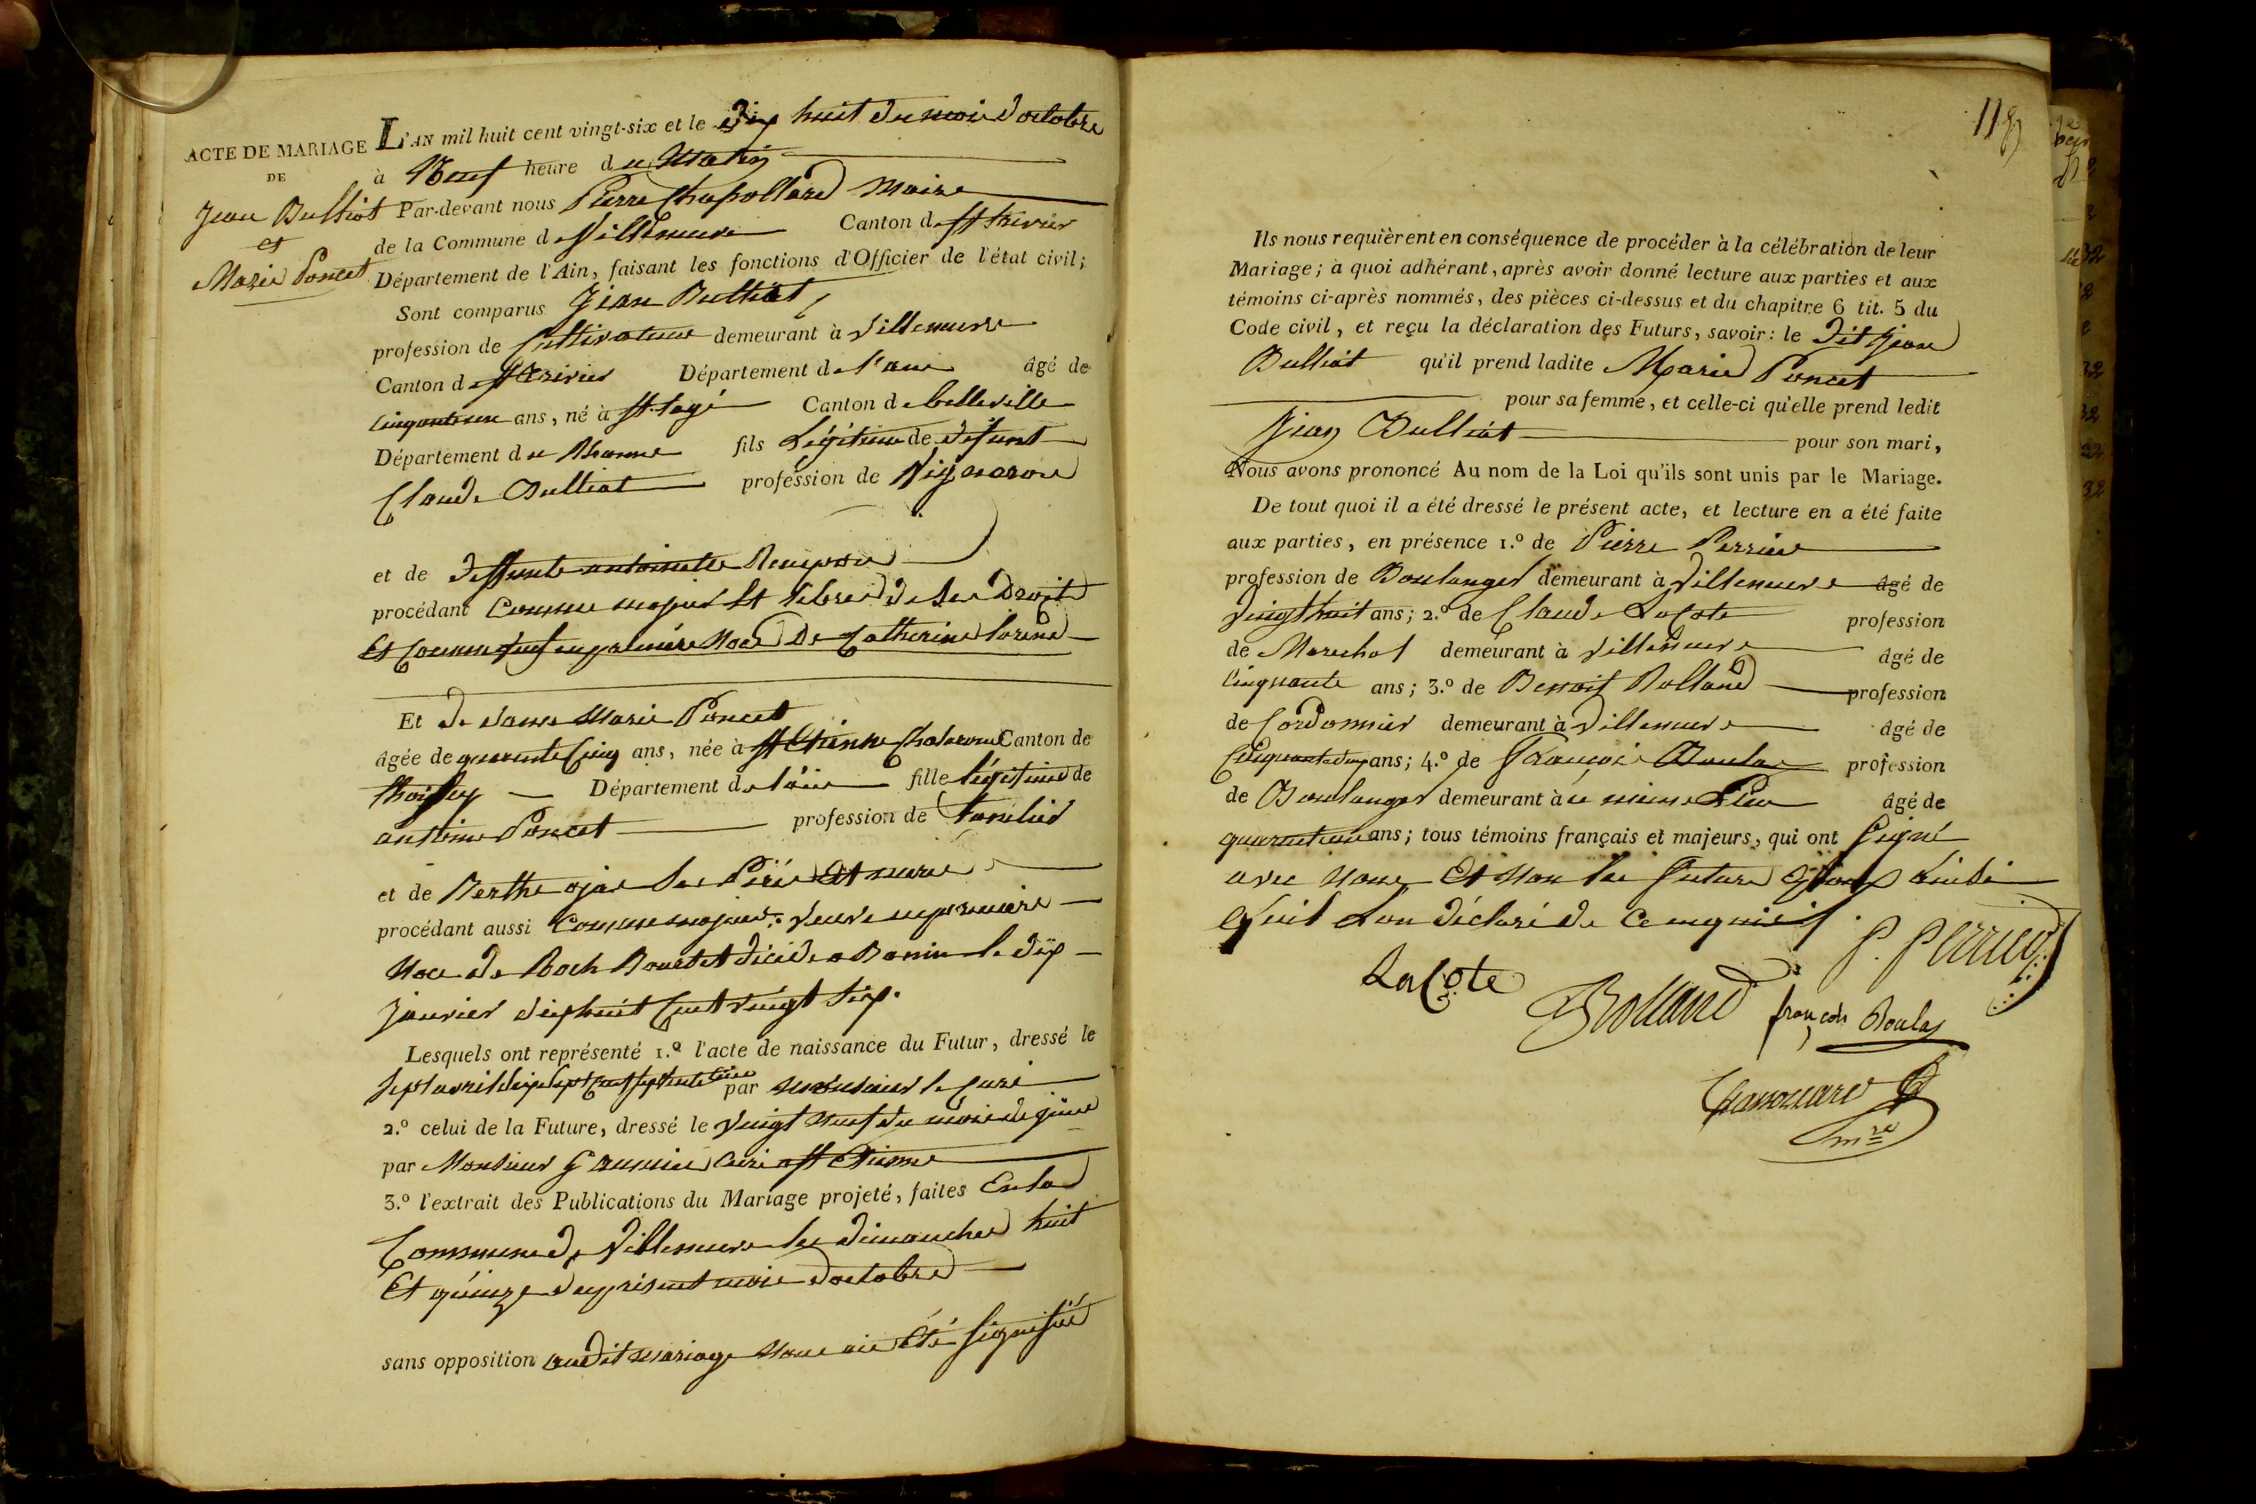 ACTE DE MARIAGE
DE
Jean Bulliat
et
Marie Poncet
L'AN mil huit cent vingt-six et le dix huit du mois doctobre
à Neuf heure du Matin
Par-devant nous Pierre Chapollard Maire
de la Commune de Villeneuve Canton de St trivier
Département de l'Ain, faisant les fonctions d'Officier de l'état civil;
Sont comparus Jean Bulliat
profession de Cultivateur demeurant à Villeneuve
Canton de St trivier Département de l'ain âgé de
ans, né à St lagé Canton de belleville
Département du Rhonne fils Légitime de defunt
Claude Bulliat profession de Vigneron
et de deffunte antoinette
procédant Comme majeur et libre de ses Droits
Et Comme veuf en première Noce De Catherine
Et de dame Marie Poncet
âgée de quarente Cinq ans, née à St Etienne Chalaronne Canton de
thoissey Département de l'ain fille légitime de
antoine Poncet profession de
et de Berthe
procédant aussi Comme majeur veuve en premiere
Noce de Roch Bourdet décédé a le dix
janvier dix huit Cent vingt six.
Lesquels ont représenté 1.º l'acte de naissance du Futur, dressé le
sept avril dix sept Cent par monsieur le Curé
2.º celui de la Future, dressé le vingt neuf du mois de
par Monsieur Curé a St Etienne
3.º l'extrait des Publications du Mariage projeté, faites En la
Commune de Villeneuve les dimanches huit
Et quinze du présent mois doctobre
sans opposition audit mariage Nous aie Eté signifiée
118
Ils nous requièrent en conséquence de procéder à la célébration de leur
Mariage; à quoi adhérant, après avoir donné lecture aux parties et aux
témoins ci-après nommés, des pièces ci-dessus et du chapitre 6 tit. 5 du
Code civil, et reçu la déclaration des Futurs, savoir: le dit Jean
Bulliat qu'il prend ladite Marie Poncet
pour sa femme, et celle-ci qu'elle prend ledit
Jean Bulliat pour son mari,
Nous avons prononcé Au nom de la Loi qu'ils sont unis par le Mariage.
De tout quoi il a été dressé le présent acte, et lecture en a été faite
aux parties, en présence 1.º de Pierre Perrier
profession de Boulanger demeurant à Villeneuve âgé de
vingt huit ans; 2.º de Claude LaCote profession
de Marechal demeurant à Villeneuve âgé de
Cinquante ans; 3.º de Benoit Rolland profession
de Cordonnier demeurant à Villeneuve âgé de
ans; 4.º de François Boulas profession
de Boulanger demeurant à ce même Lieu âgé de
ans; tous témoins français et majeurs, qui ont signé
avec Nous Et Non les futurs Epoux ainsi
quil Lon déclaré de Ce enquis.
LaCote P. Perrier
Rolland françois Boulas
Chapollard
mre